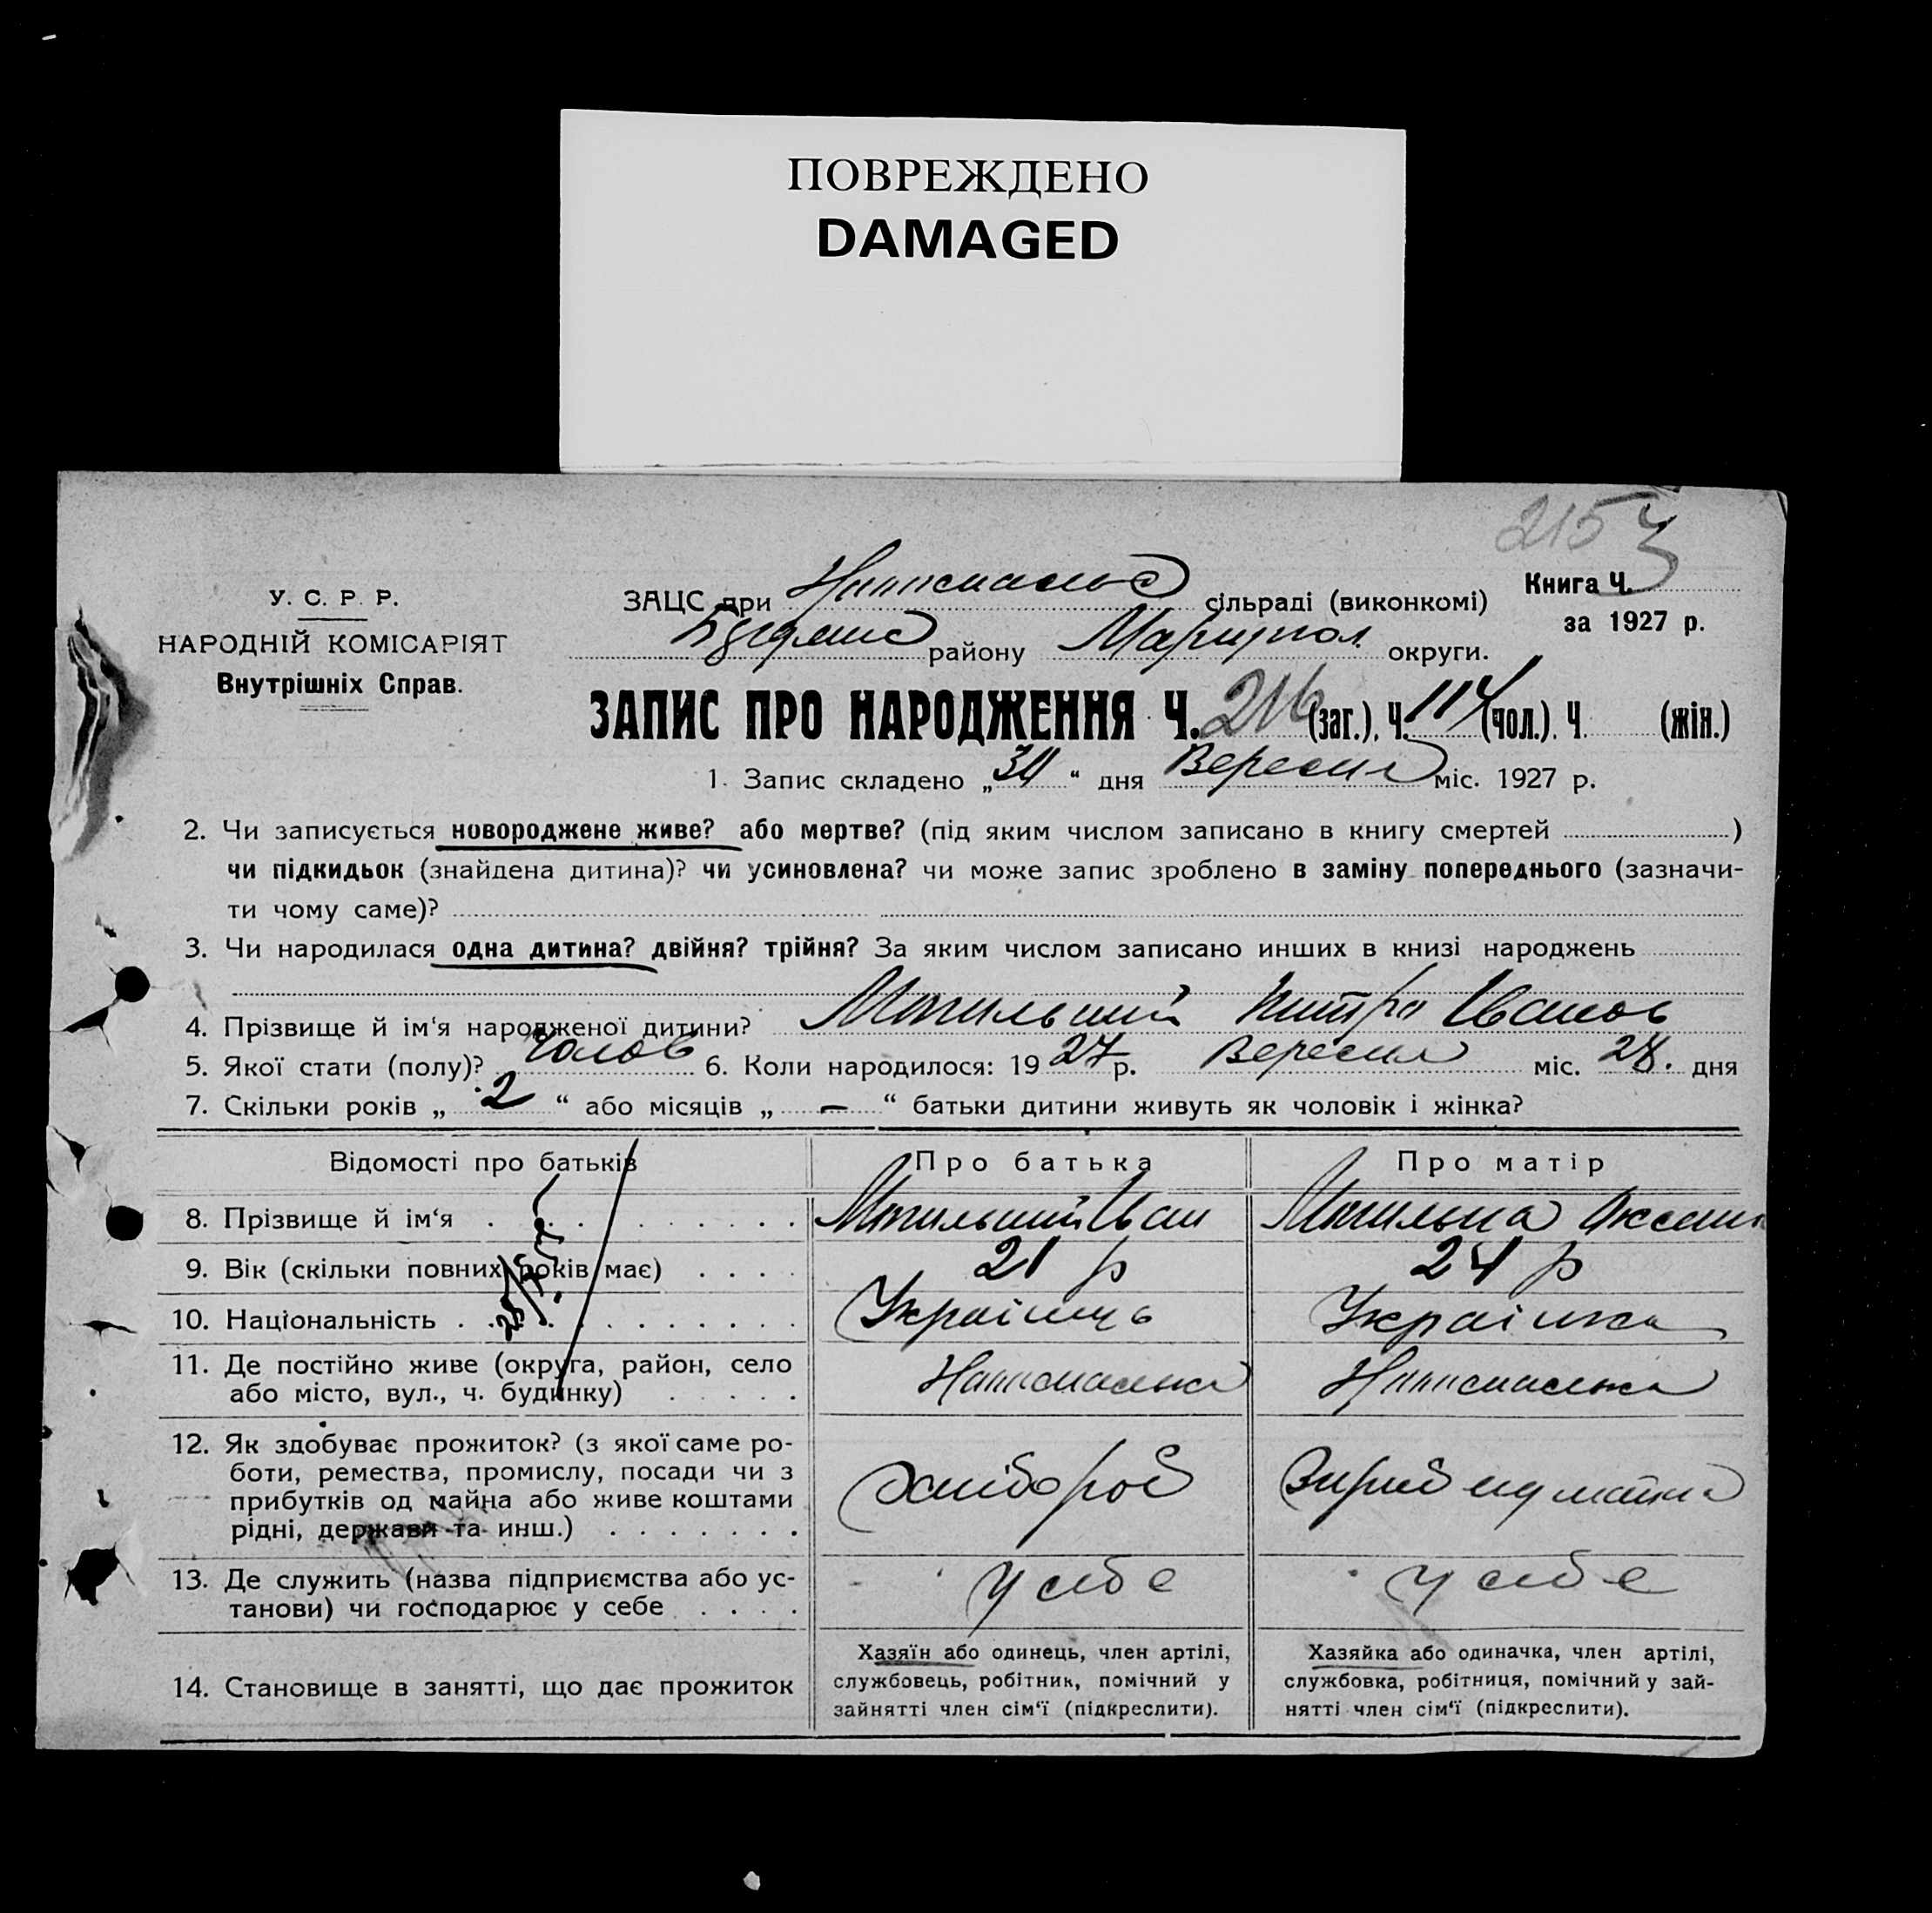 ПОВРЕЖДЕНО
DAMAGED
215
У. С. Р. Р.
НАРОДНІЙ КОМІСАРІЯТ
Внутрішніх Справ.
Книга Ч. 3
за 1927 р.
ЗАЦС при сільраді (виконкомі)
району Маріупол. округи.
ЗАПИС ПРО НАРОДЖЕННЯ Ч. 216 (заг.). Ч. 114 (чол.). Ч. (жін.)
1. Запис складено „ “ дня Вересня міс. 1927 р.
2. Чи записується новороджене живе? або мертве? (під яким числом записано в книгу смертей )
чи підкидьок (знайдена дитина)? чи усиновлена? чи може запис зроблено в заміну попереднього (зазначи-
ти чому саме)?
3. Чи народилася одна дитина? двійня? трійня? За яким числом записано инших в книзі народжень
4. Прізвище й ім‘я народженої дитини? Могильний Іванов
5. Якої стати (полу)? Чолов 6. Коли народилося: 19 27 р. Вересня міс. 28. дня
7. Скільки років „ 2 “ або місяців „ — “ батьки дитини живуть як чоловік і жінка?
Відомості про батьків Про батька Про матір
8. Прізвище й ім‘я Могильний Іван Могильна Оксана
9. Вік (скільки повних років має) 21 р 24 р
10. Національність Українць Українка
11. Де постійно живе (округа, район, село
або місто, вул., ч. будинку)
12. Як здобуває прожиток? (з якої саме ро-
боти, ремества, промислу, посади чи з
прибутків од майна або живе коштами
рідні, держави та инш.) Хлібороб
13. Де служить (назва підприємства або ус-
танови) чи господарює у себе у себе у себе
14. Становище в занятті, що дає прожиток
Хазяїн або одинець, член артілі,
службовець, робітник, помічний у
зайнятті член сім‘ї (підкреслити).
Хазяйка або одиначка, член артілі,
службовка, робітниця, помічний у зай-
нятті член сім‘ї (підкреслити).